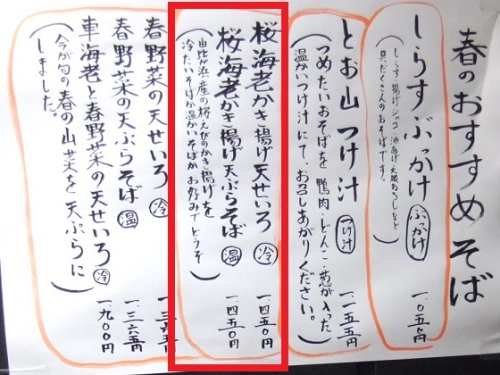 春のおすすめそば
しらすぶっかけ ぶっかけ 一、〇五〇円
具だくさんのおそばです。)
とお山つけ汁 つけ汁 一、一五五円
(つめたいおそばを鴨肉・どんこ・葱が入った
温かいつけ汁にて、お召しあがりください。)
桜海老かき揚げ天せいろ 冷 一、四五〇円
桜海老かき揚げ天ぷらそば 温 一、四五〇円
(由比が浜産の桜えびのかき揚げを
冷たいそばか温かいそばかお好みでどうぞ)
春野菜の天せいろ 冷 一、三六五円
春野菜の天ぷらそば 温 一、三六五円
車海老と春野菜の天せいろ 冷 一、九〇〇円
(今が旬の春の山菜を天ぷらに
しました。)